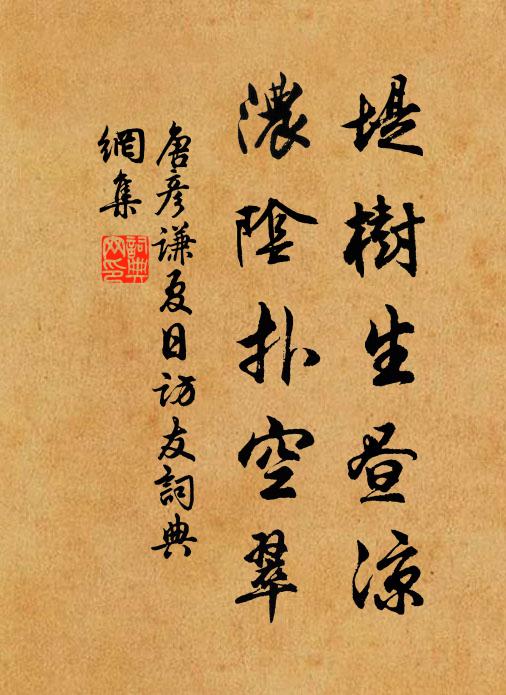 堤樹生昼涼
濃陰扑空翠
唐彦謙夏日訪友詞典
網集
詞典
网印